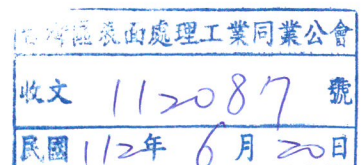 台灣區表面處理工業同業公會
收文 112087 號
民國112年6月20日